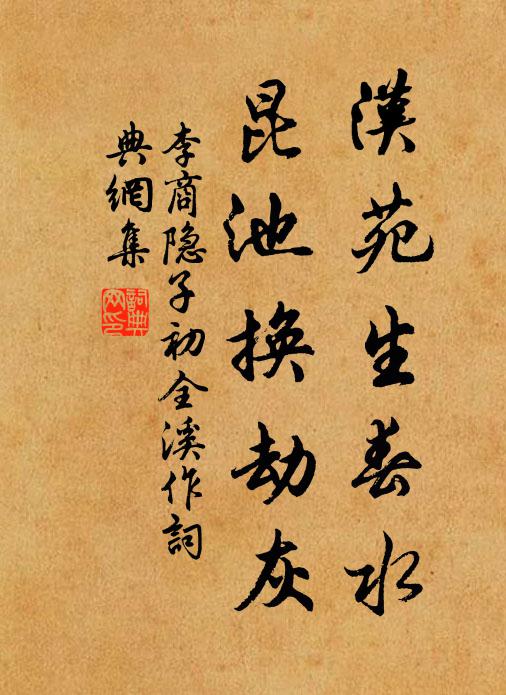 漢苑生春水
昆池換劫灰
李商隐子初全溪作詞
典網集
詞典網印